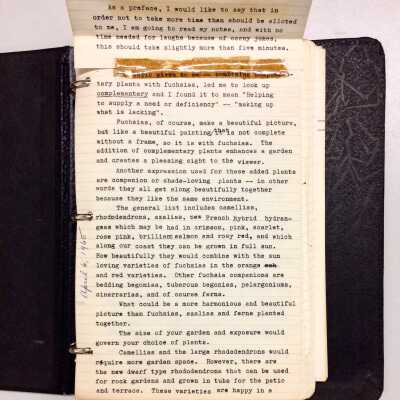 As a preface, I would like to say that in
order not to take more time than should be alloted
to me, I am going to read my notes, and with no
time needed for laughs because of corny jokes,
this should take slightly more than five minutes.
topic given to me -- combining
tary plants with fuchsias, led me to look up
complementary and I found it to mean "Helping
to supply a need or deficiency" -- "making up
what is lacking".
Fuchsias, of course, make a beautiful picture,
but like a beautiful painting that is not complete
without a frame, so it is with fuchsias. The
addition of complementary plants enhances a garden
and creates a pleasing sight to the viewer.
Another expression used for these added plants
are companion or shade-loving plants -- in other
words they all get along beautifully together
because they like the same environment.
The general list includes camellias,
rhododendrons, azalias, new French hybrid hydran-
geas which may be had in crimson, pink, scarlet,
rose pink, brilliant salmon and rosy red, and which
along our coast they can be grown in full sun.
How beautifully they would combine with the sun
loving varieties of fuchsias in the orange
and red varieties. Other fuchsia companions are
bedding begonias, tuberous begonias, pelargoniums,
cinerarias, and of course ferns.
What could be a more harmonious and beautiful
picture than fuchsias, azalias and ferns planted
together.
The size of your garden and exposure would
govern your choice of plants.
Camellias and the large rhododendrons would
require more garden space. However, there are
the new dwarf type rhododendrons that can be used
for rock gardens and grown in tubs for the patio
and terrace. These varieties are happy in a
April 6, 1965